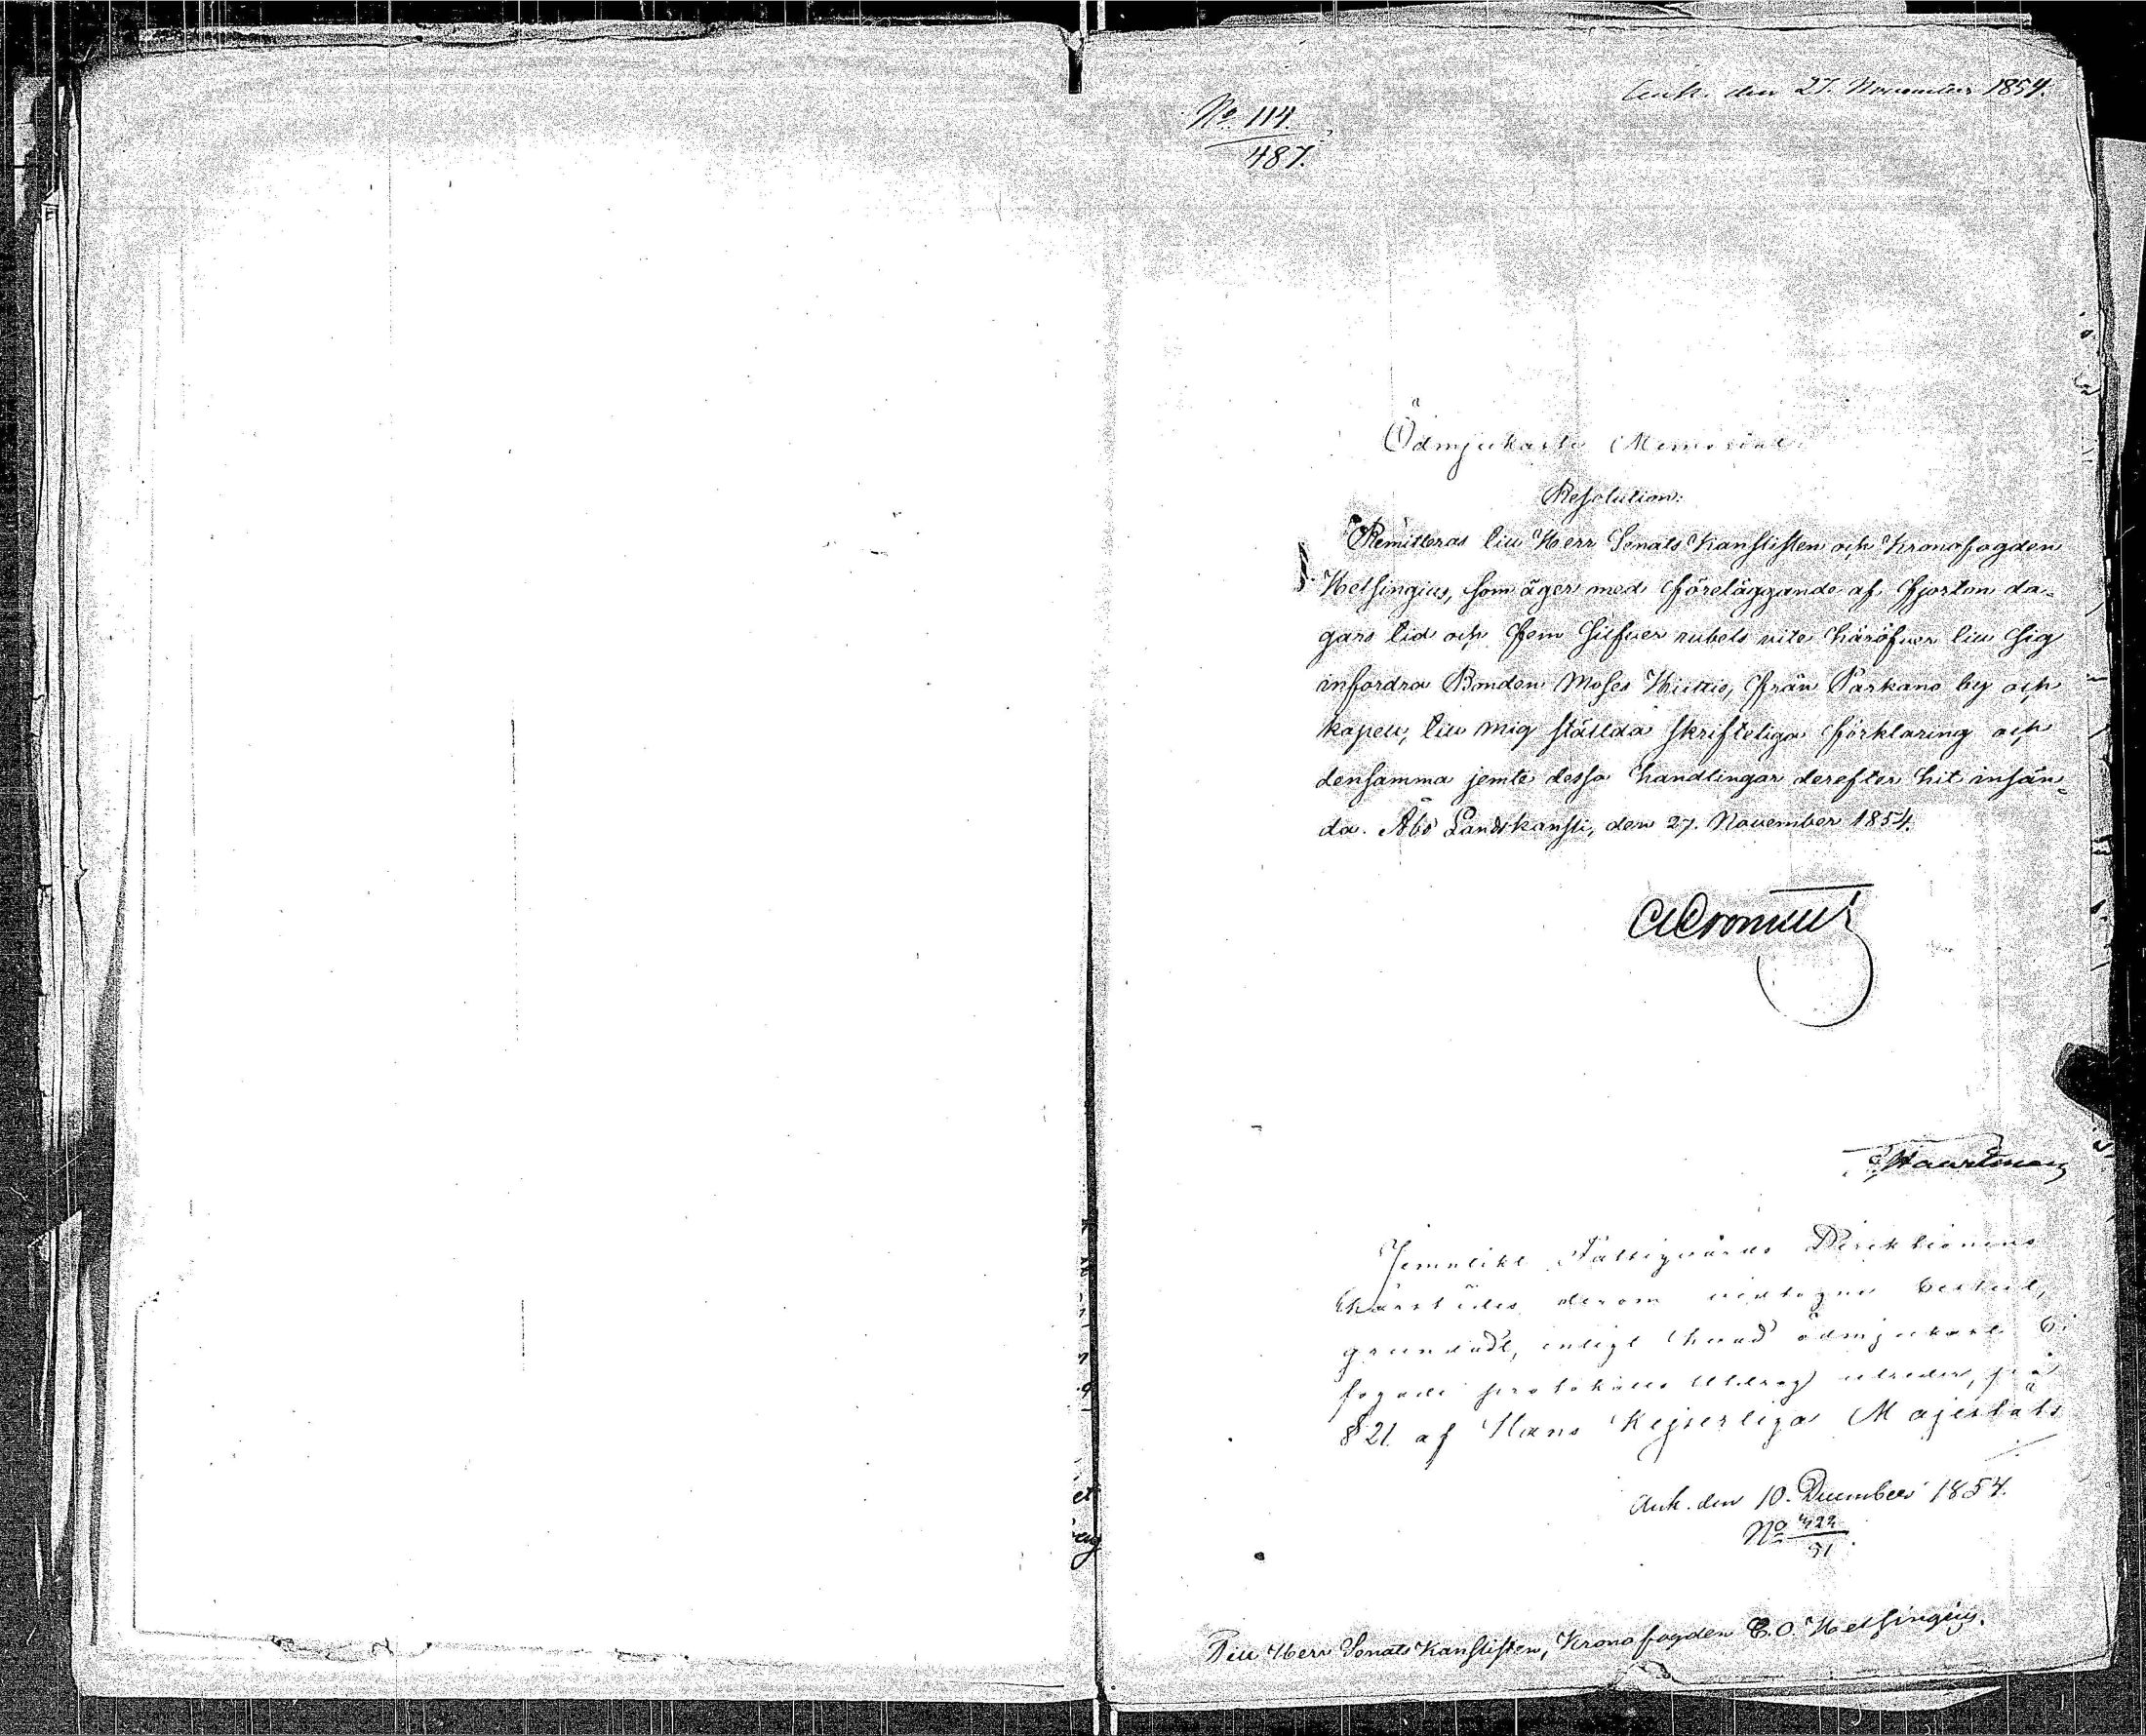 Ank. den 27. November 1854.
No. 114.
487.
Ödmjukaste Memorial.
Resolution:
Remitteras till Herr Senats Kanslisten och Kronofogden
Helsingius, som äger med föreläggande af fjorton da-
gars tid och fem Silfver rubels vite häröfver till sig
infordra Bonden Moses Kiikio, från Parkano by och
kapell, till mig ställda skrifteliga förklaring och
densamma jemte dessa handlingar derefter hit insän-
da. Åbo Landskansli, den 27. November 1854.
Cronstedt
Haartman
Jemnlikt Fattigvårds Direktionens
härstädes derom vidtagne beslut,
grundadt, enligt hvad ödmjukast bi
fogade protokolls utdrag utreder, på
§ 21. af Hans Kejserliga Majestäts
Ank. den 10. December 1854.
No 422
91.
Till Herr Senats Kanslisten, Kronofogden C. O. Helsingius.